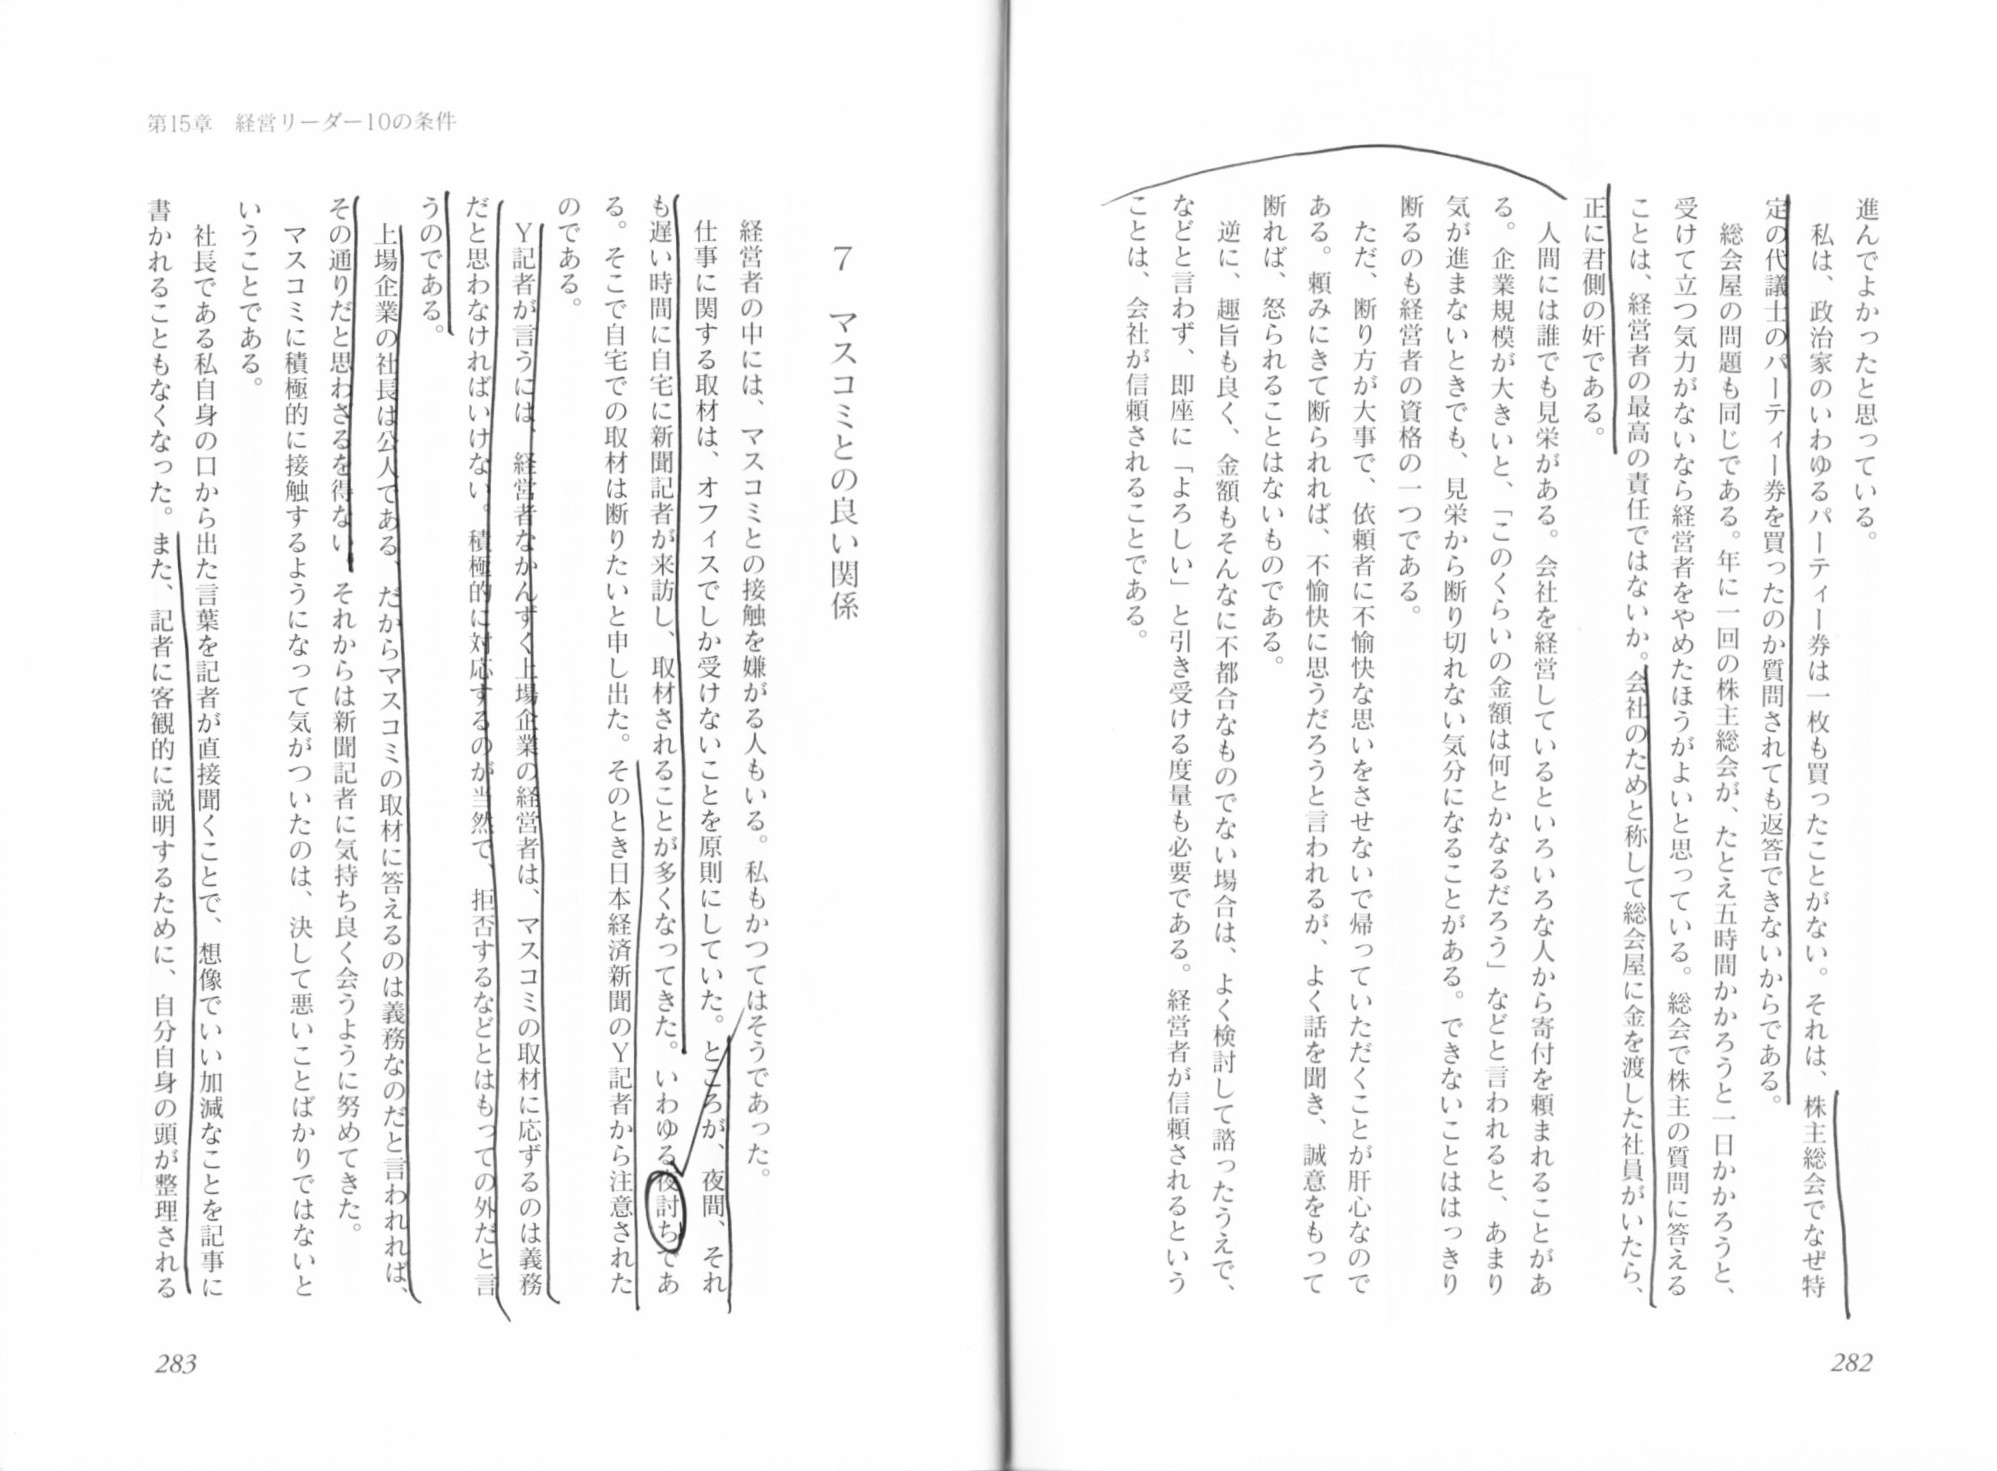 進んでよかったと思っている。
私は、政治家のいわゆるパーティー券は一枚も買ったことがない。それは、株主総会でなぜ特
定の代議士のパーティー券を買ったのか質問されても返答できないからである。
総会屋の問題も同じである。年に一回の株主総会が、たとえ五時間かかろうと一日かかろうと、
受けて立つ気力がないなら経営者をやめたほうがよいと思っている。総会で株主の質問に答える
ことは、経営者の最高の責任ではないか。会社のためと称して総会屋に金を渡した社員がいたら、
正に君側の奸である。
人間には誰でも見栄がある。会社を経営しているといろいろな人から寄付を頼まれることがあ
る。企業規模が大きいと、「このくらいの金額は何とかなるだろう」などと言われると、あまり
気が進まないときでも、見栄から断り切れない気分になることがある。できないことははっきり
断るのも経営者の資格の一つである。
ただ、断り方が大事で、依頼者に不愉快な思いをさせないで帰っていただくことが肝心なので
ある。頼みにきて断られれば、不愉快に思うだろうと言われるが、よく話を聞き、誠意をもって
断れば、怒られることはないものである。
逆に、趣旨も良く、金額もそんなに不都合なものでない場合は、よく検討して諮ったうえで、
などと言わず、即座に「よろしい」と引き受ける度量も必要である。経営者が信頼されるという
ことは、会社が信頼されることである。
282
第15章 経営リーダー10の条件
7 マスコミとの良い関係
経営者の中には、マスコミとの接触を嫌がる人もいる。私もかつてはそうであった。
仕事に関する取材は、オフィスでしか受けないことを原則にしていた。ところが、夜間、それ
も遅い時間に自宅に新聞記者が来訪し、取材されることが多くなってきた。いわゆる夜討ちであ
る。そこで自宅での取材は断りたいと申し出た。そのとき日本経済新聞のY記者から注意された
のである。
Y記者が言うには、経営者なかんずく上場企業の経営者は、マスコミの取材に応ずるのは義務
だと思わなければいけない。積極的に対応するのが当然で、拒否するなどとはもっての外だと言
うのである。
上場企業の社長は公人である、だからマスコミの取材に答えるのは義務なのだと言われれば、
その通りだと思わざるを得ない。それからは新聞記者に気持ち良く会うように努めてきた。
マスコミに積極的に接触するようになって気がついたのは、決して悪いことばかりではないと
いうことである。
社長である私自身の口から出た言葉を記者が直接聞くことで、想像でいい加減なことを記事に
書かれることもなくなった。また、記者に客観的に説明するために、自分自身の頭が整理される
283